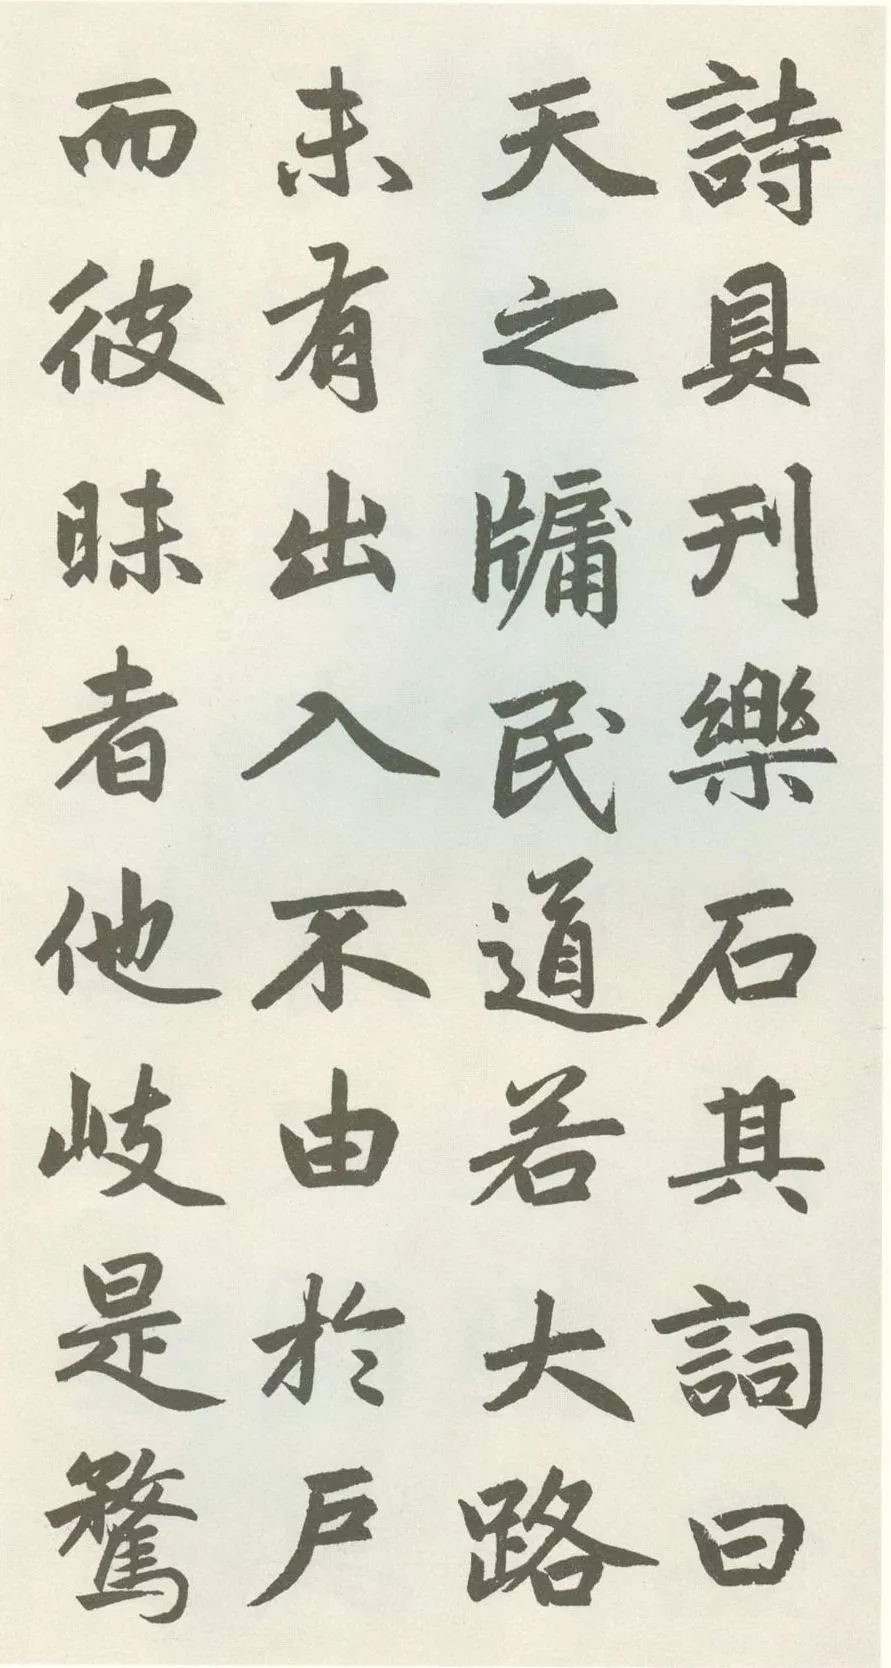 詩具刊樂石其詞曰
天之牗民道若大路
未有出入不由於戶
而彼昧者他岐是騖